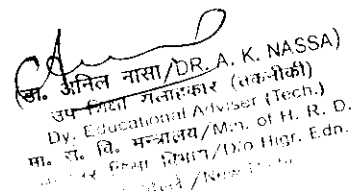 (डा. अनिल नासा/DR. A. K. NASSA)
उप शिक्षा सलाहकार (तकनीकी)
Dy. Educational Adviser (Tech.)
मा. सं. वि. मन्त्रालय/Min. of H. R. D.
शिक्षा विभाग/D/o Higr. Edn.
/New Delhi